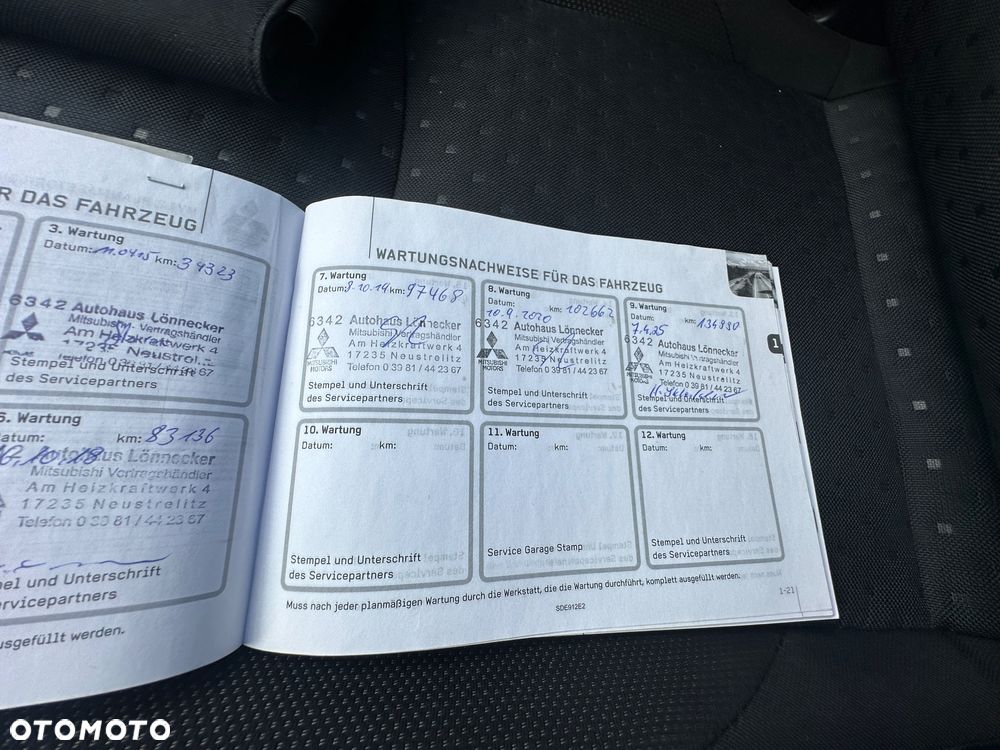 R DAS FAHRZEUG
3. Wartung
Datum: 11.04.15 km: 34323
6342 Autohaus Lönnecker
Mitsubishi Vertragshändler
Am Heizkraftwerk 4
17235 Neustrelitz
Telefon 0 39 81 / 44 23 67
Stempel und Unterschrift
des Servicepartners
6. Wartung
Datum: km: 83136
10.18
Autohaus Lönnecker
Mitsubishi Vertragshändler
Am Heizkraftwerk 4
17235 Neustrelitz
Telefon 0 39 81 / 44 23 67
el und Unterschrift
ervicepartners
usgefüllt werden.
WARTUNGSNACHWEISE FÜR DAS FAHRZEUG
7. Wartung
Datum: 9.10.19 km: 97468
6342 Autohaus Lönnecker
Mitsubishi Vertragshändler
Am Heizkraftwerk 4
17235 Neustrelitz
Telefon 0 39 81 / 44 23 67
MITSUBISHI
MOTORS
Stempel und Unterschrift
des Servicepartners
8. Wartung
Datum: km: 102662
10.9.2020
6342 Autohaus Lönnecker
Mitsubishi Vertragshändler
Am Heizkraftwerk 4
17235 Neustrelitz
Telefon 0 39 81 / 44 23 67
MITSUBISHI
MOTORS
Stempel und Unterschrift
des Servicepartners
9. Wartung
Datum: km: 134990
7.4.25
6342 Autohaus Lönnecker
Mitsubishi Vertragshändler
Am Heizkraftwerk 4
17235 Neustrelitz
Telefon 0 39 81 / 44 23 67
MITSUBISHI
MOTORS
Stempel und Unterschrift
des Servicepartners
1
10. Wartung
Datum: km:
Stempel und Unterschrift
des Servicepartners
11. Wartung
Datum: km:
Service Garage Stamp
12. Wartung
Datum: km:
Stempel und Unterschrift
des Servicepartners
Muss nach jeder planmäßigen Wartung durch die Werkstatt, die die Wartung durchführt, komplett ausgefüllt werden.
1-21
SDE912E2
OTOMOTO